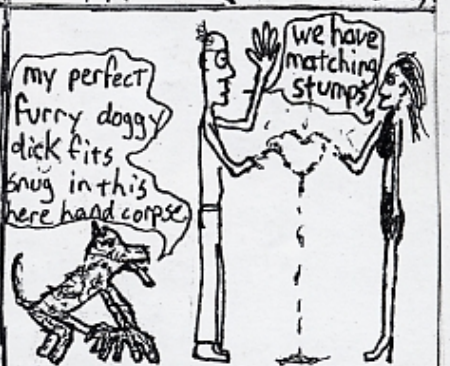 my perfect
furry doggy
dick fits
snug in this
here hand corpse
we have
matching
stumps